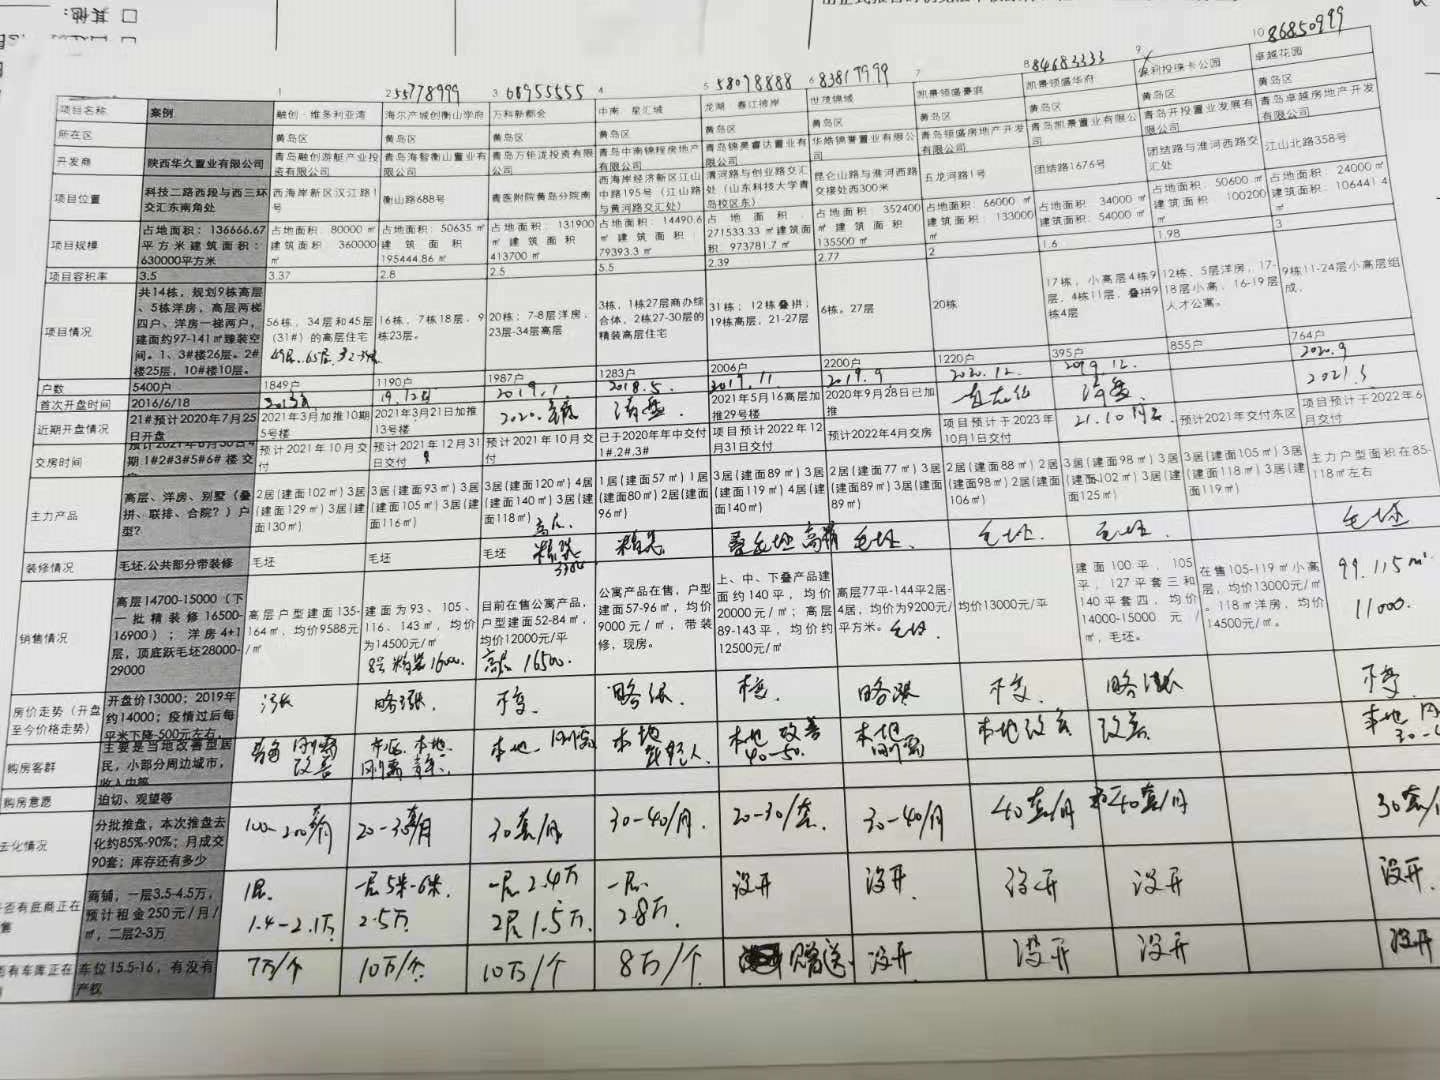 其他:
1
2 55778999
3 68955555
4
5 58098888
6 83819999
7
8 84683333
9
10 86850999
项目名称 案例 融创·维多利亚湾 海尔产城创衡山学府 万科新都会 中南 星汇城 龙湖 春江彼岸 世茂锦域 凯景领盛豪庭 凯景领盛华府 保利投珠卡公园 卓越花园
所在区 黄岛区 黄岛区 黄岛区 黄岛区 黄岛区 黄岛区 黄岛区 黄岛区 黄岛区 黄岛区
开发商 陕西华久置业有限公司 青岛融创游艇产业投资有限公司 青岛海智衡山置业有限公司 青岛万钜泷投资有限公司 青岛中南锦程房地产有限公司 青岛锦昊睿达置业有限公司 华皓锦誉置业有限公司 青岛领盛房地产开发有限公司 青岛凯景置业有限公司 青岛开投置业发展有限公司 青岛卓越房地产开发有限公司
项目位置 科技二路西段与西三环交汇东南角处 西海岸新区汉江路1号 衡山路688号 青医附院黄岛分院南 西海岸经济新区江山中路195号（江山路与黄河路交汇处） 渭河路与创业路交汇处（山东科技大学青岛校区东） 昆仑山路与淮河西路交接处西300米 五龙河路1号 团结路1676号 团结路与淮河西路交汇处 江山北路358号
项目规模 占地面积：136666.67平方米建筑面积：630000平方米 占地面积：80000㎡建筑面积：360000㎡ 占地面积：50635㎡建筑面积195444.86㎡ 占地面积：131900㎡建筑面积413700㎡ 占地面积：14490.6㎡建筑面积：79393.3㎡ 占地面积：271533.33㎡建筑面积：973781.7㎡ 占地面积：352400㎡建筑面积135500㎡ 占地面积：66000㎡建筑面积：133000㎡ 占地面积：34000㎡建筑面积：54000㎡ 占地面积：50600㎡建筑面积：100200㎡ 占地面积：24000㎡建筑面积：106441.4㎡
项目容积率 3.5 3.37 2.8 2.5 5.5 2.39 2.77 2 1.6 1.98 3
项目情况 共14栋，规划9栋高层、5栋洋房，高层两梯四户、洋房一梯两户，建面约97-141㎡臻装空间。1、3#楼26层。2#楼25层，10#楼10层。 56栋，34层和45层（31#）的高层住宅 16栋，7栋18层，9栋23层。 20栋；7-8层洋房，23层-34层高层 3栋，1栋27层商办综合体，2栋27-30层的精装高层住宅 31栋；12栋叠拼，19栋高层，21-27层 6栋。27层 20栋 17栋，小高层4栋9层，4栋11层，叠拼9栋4层 12栋，5层洋房，17-18层小高，16-19层人才公寓。 9栋11-24层小高层组成。
户数 5400户 1849户 1190户 1987户 1283户 2006户 2200户 1220户 395户 855户 764户
首次开盘时间 2016/6/18 2019.1 2018.5. 2019.11 2019.9 2020.12. 2019.12. 2020.9
近期开盘情况 21#预计2020年7月25日开盘 2021年3月加推10期5号楼 2021年3月21日加推13号楼 清盘. 2021年5月16高层加推29号楼 2020年9月28日已加推 清盘 2021.5
交房时间 期1#2#3#5#6#楼交 预计2021年10月交付 预计2021年12月31日交付 预计2021年10月交付 已于2020年年中交付1#.2#.3# 项目预计2022年12月31日交付 预计2022年4月交房 项目预计于2023年10月1日交付 预计2021年交付东区 项目预计于2022年6月交付
主力产品 高层、洋房、别墅（叠拼、联排、合院？）户型？ 2居(建面102㎡) 3居(建面129㎡) 3居(建面130㎡) 3居(建面93㎡) 3居(建面105㎡) 3居(建面116㎡) 3居(建面120㎡) 4居(建面140㎡) 3居(建面118㎡) 1居(建面57㎡) 1居(建面80㎡) 2居(建面96㎡) 3居(建面89㎡) 3居(建面119㎡) 4居(建面140㎡) 2居(建面77㎡) 3居(建面89㎡) 3居(建面89㎡) 2居(建面88㎡) 2居(建面98㎡) 2居(建面106㎡) 3居(建面98㎡) 3居(建面102㎡) 3居(建面125㎡) 3居(建面105㎡) 3居(建面118㎡) 3居(建面119㎡) 主力户型面积在85-118㎡左右
装修情况 毛坯,公共部分带装修 毛坯 毛坯 毛坯 精装 精装 毛坯 毛坯. 毛坯. 毛坯. 毛坯
销售情况 高层14700-15000（下一批精装修16500-16900）；洋房4+1层，顶底跃毛坯28000-29000 高层户型建面135-164㎡，均价9588元/㎡ 建面为93、105、116、143㎡，均价为14500元/㎡ 精装16000. 目前在售公寓产品，户型建面52-84㎡，均价12000元/平 高层 16500. 公寓产品在售，户型建面57-96㎡，均价9000元/㎡，带装修，现房。 上、中、下叠产品建面约140平，均价20000元/㎡；高层89-143平，均价约12500元/㎡ 高层77平-144平2居-4居，均价为9200元/平方米。 毛坯. 均价13000元/平 建面100平，105平，127平套三和140平套四，均价14000-15000元/㎡，毛坯。 在售105-119㎡小高层，均价13000元/㎡。118㎡洋房，均价14500元/㎡。 99.115㎡ 11000.
房价走势（开盘至今价格走势） 开盘价13000；2019年约14000；疫情过后每平米下降-500元左右， 涨 略涨. 不变. 略涨. 不变. 略涨 不变. 略涨 不变.
购房客群 主要是当地改善型居民，小部分周边城市，收入中等 刚需 改善 本地. 刚需 本地. 刚需 本地 年轻人. 本地 改善 40-50. 本地 刚需 本地改善 改善. 本地
购房意愿 迫切、观望等
去化情况 分批推盘，本次推盘去化约85%-90%；月成交90套；库存还有多少 100-200套/月 20-30套/月 30套/月 30-40/月. 20-30/套. 30-40/月 40套/月 40套/月 30套/
否有底商正在售 商铺，一层3.5-4.5万，预计租金250元/月/㎡，二层2-3万 1层. 1.4-2.1万. 一层5米-6米. 2.5万. 一层2.4万 2层1.5万. 一层. 2.8万. 没开 没开. 没开 没开 没开.
否有车库正在 车位15.5-16，有没有产权 7万/个 10万/个 10万/个 8万/个 赠送. 没开 没开 没开 没开